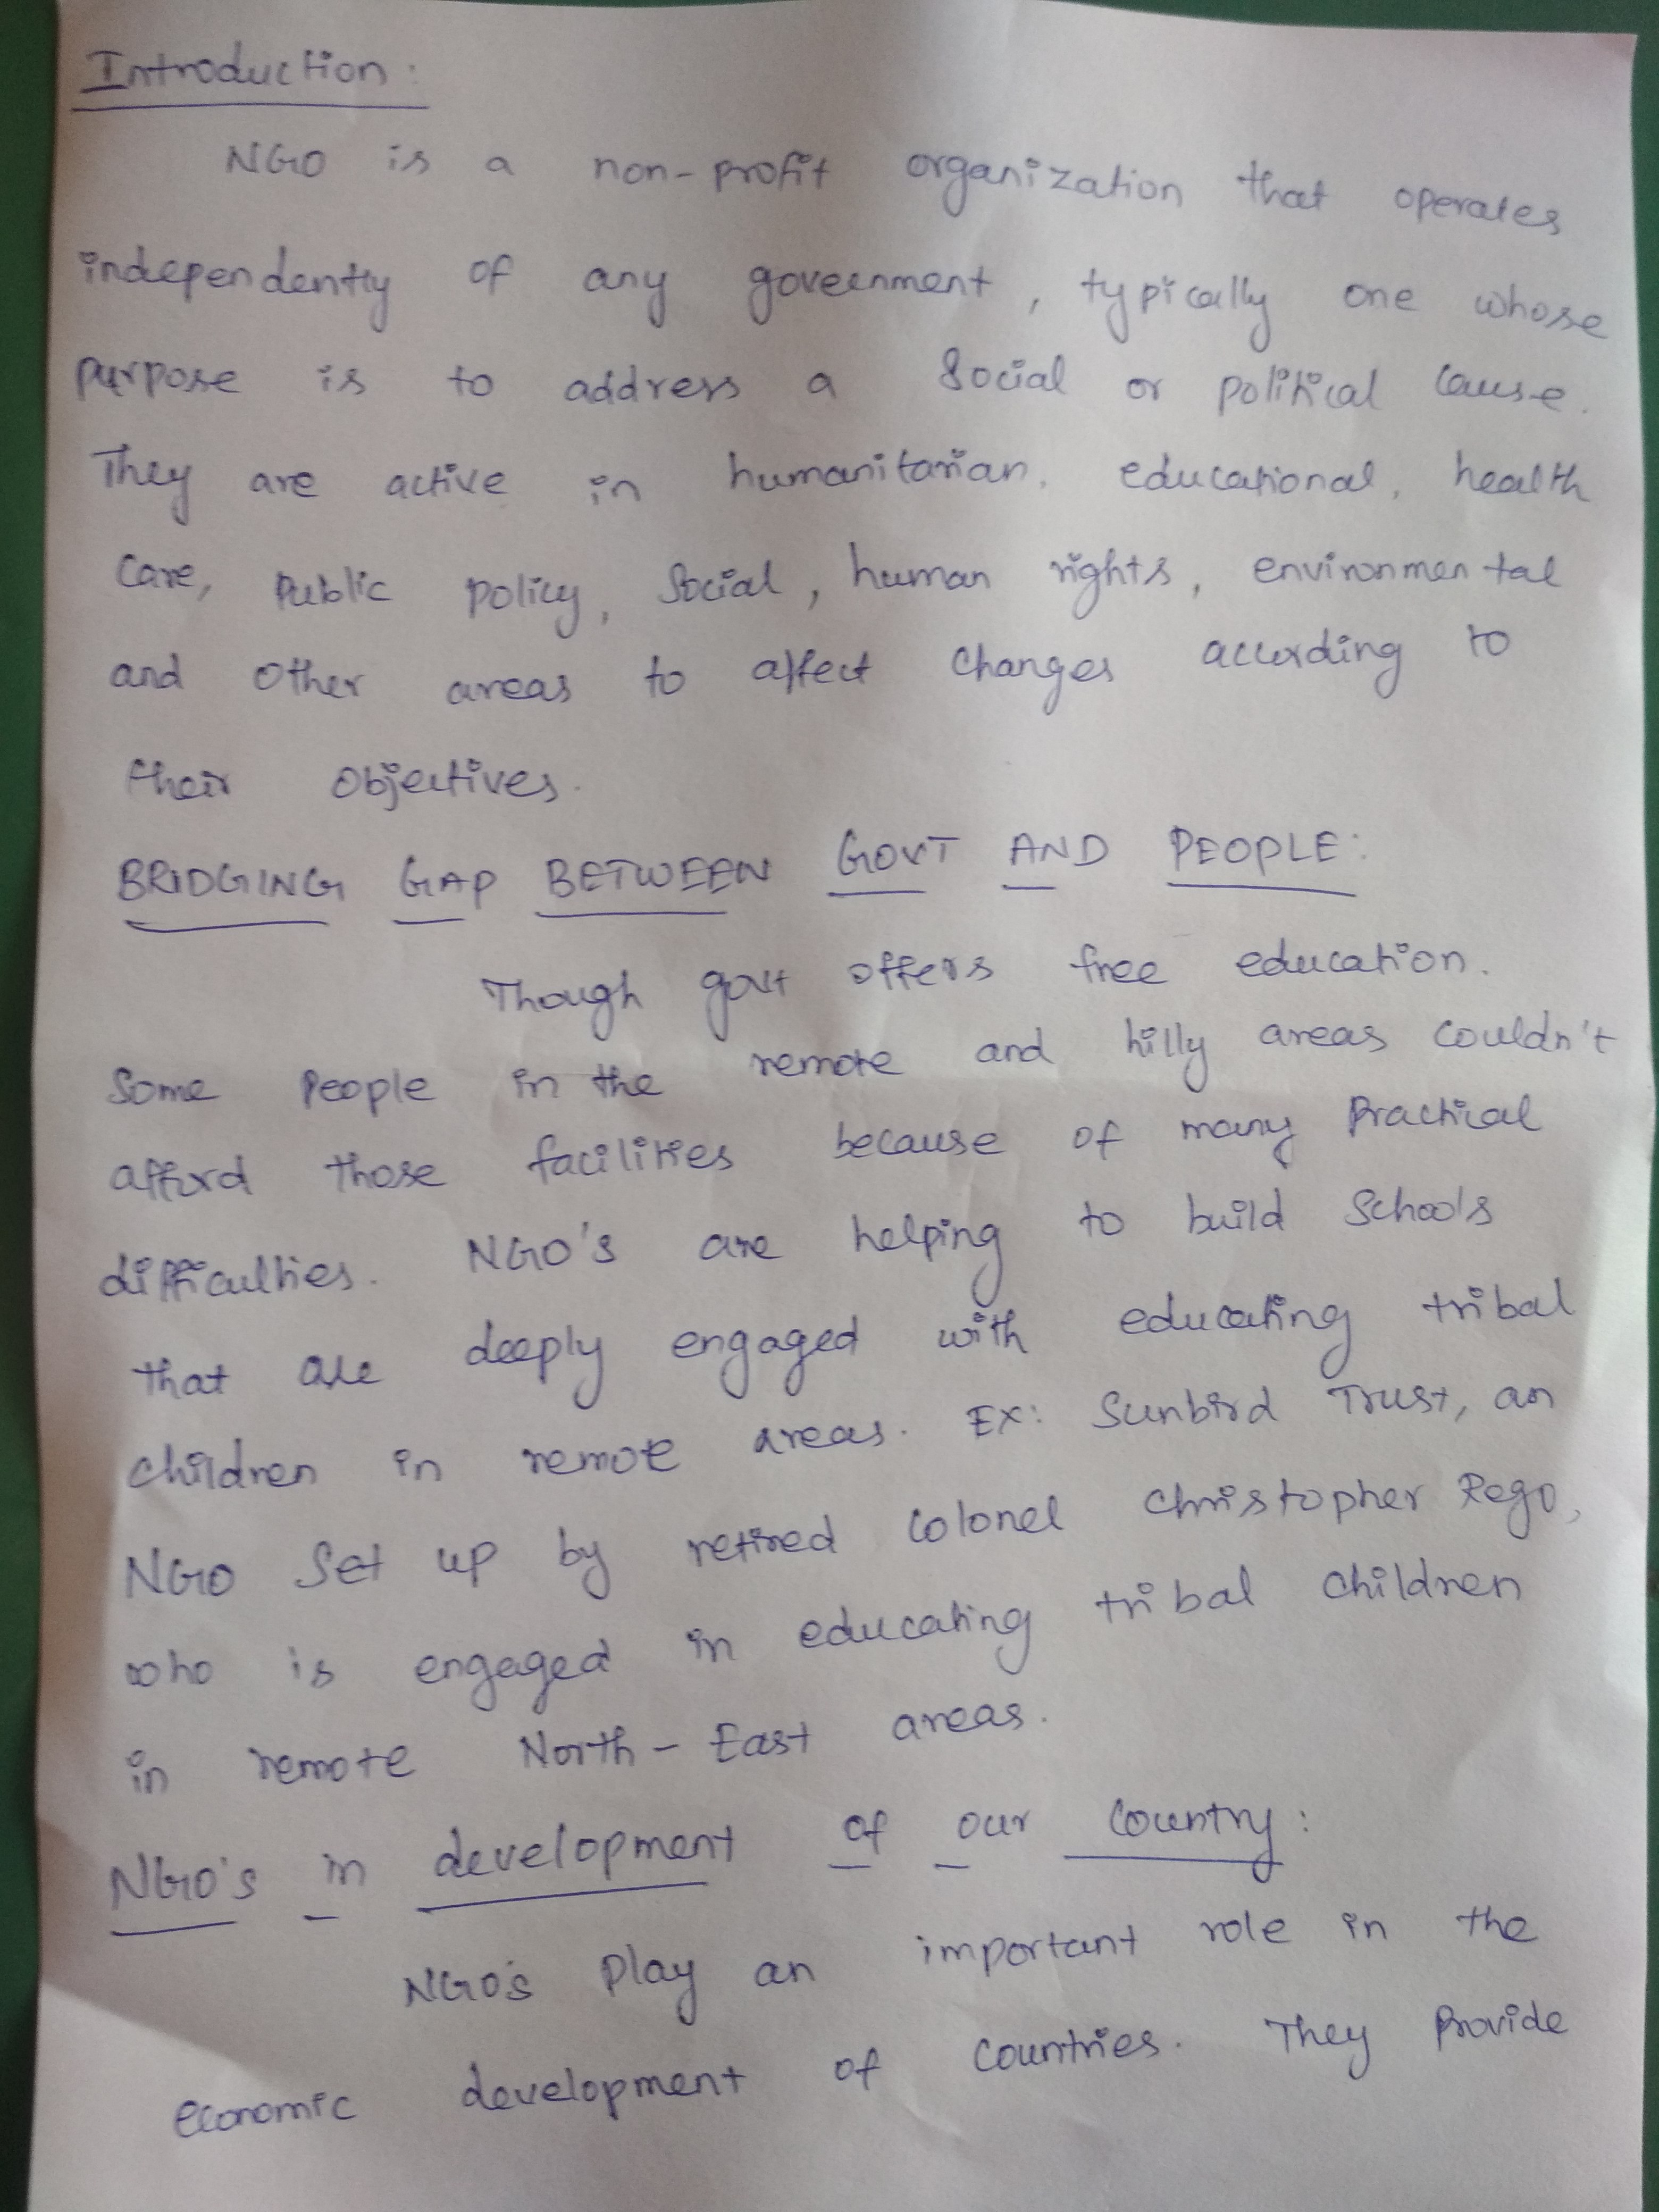 Introduction:
NGO is a non-profit organization that operates
independently of any government, typically one whose
purpose is to address a social or political cause.
They are active in humanitarian, educational, health
care, public policy, social, human rights, environmental
and other areas to affect changes according to
their objectives.
BRIDGING GAP BETWEEN GOVT AND PEOPLE:
Though govt offers free education.
Some people in the remote and hilly areas couldn't
afford those facilities because of many practical
difficulties. NGO's are helping to build schools
that are deeply engaged with educating tribal
children in remote areas. EX: Sunbird Trust, an
NGO set up by retired colonel Christopher Rego,
who is engaged in educating tribal children
in remote North-East areas.
NGO's in development of our country:
NGO's play an important role in the
economic development of countries. They provide